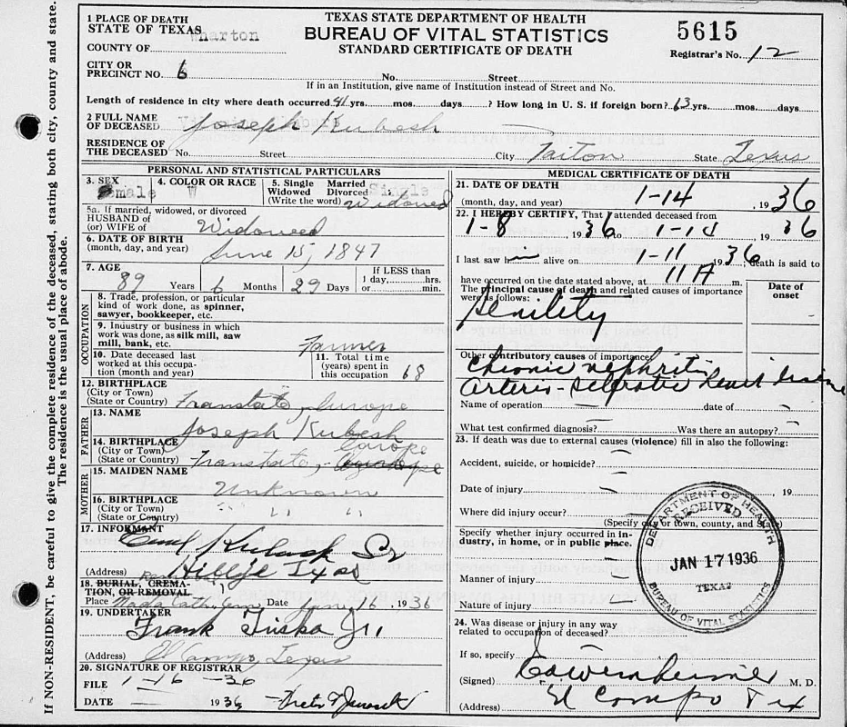 If NON-RESIDENT, be careful to give the complete residence of the deceased, stating both city, county and state.
The residence is the usual place of abode.
TEXAS STATE DEPARTMENT OF HEALTH
BUREAU OF VITAL STATISTICS
STANDARD CERTIFICATE OF DEATH
5615
Registrar's No. 12
1 PLACE OF DEATH
STATE OF TEXAS
COUNTY OF Wharton
CITY OR
PRECINCT NO. 6 No. Street
If in an Institution, give name of Institution instead of Street and No.
Length of residence in city where death occurred 41 yrs. mos. days ? How long in U. S. if foreign born? 63 yrs. mos. days
2 FULL NAME
OF DECEASED Joseph Kubesh
RESIDENCE OF
THE DECEASED No. Street City State Texas
PERSONAL AND STATISTICAL PARTICULARS
3. SEX male
4. COLOR OR RACE W
5. Single Married
Widowed Divorced
(Write the word) Single Widowed
5a. If married, widowed, or divorced
HUSBAND OF
(or) WIFE of Widowed
6. DATE OF BIRTH
(month, day, and year) June 15, 1847
7. AGE
89 Years 6 Months 29 Days
If LESS than
1 day hrs.
or min.
OCCUPATION
8. Trade, profession, or particular
kind of work done, as spinner,
sawyer, bookkeeper, etc.
9. Industry or business in which
work was done, as silk mill, saw
mill, bank, etc. Farmer
10. Date deceased last
worked at this occupa-
tion (month and year)
11. Total time
(years) spent in
this occupation 68
12. BIRTHPLACE
(City or Town)
(State or Country) Europe
FATHER
13. NAME Joseph Kubesh
14. BIRTHPLACE
(City or Town)
(State or Country) Europe
MOTHER
15. MAIDEN NAME
Unknown
16. BIRTHPLACE
(City or Town)
(State or Country) " "
17. INFORMANT
Sr
(Address) Hillje Texas
18. BURIAL, CREMA-
TION, OR REMOVAL
Place Nada Catholic Cem Date Jan 16 1936
19. UNDERTAKER
Frank Triska Jr.
(Address) El Campo Texas
20. SIGNATURE OF REGISTRAR
FILE 1-16-36
DATE 1936
MEDICAL CERTIFICATE OF DEATH
21. DATE OF DEATH
(month, day, and year) 1-14, 1936
22. I HEREBY CERTIFY, That I attended deceased from
1-8 1936 to 1-14 1936
I last saw him alive on 1-11 1936, death is said to
have occurred on the date stated above, at 11 A m.
The principal cause of death and related causes of importance
were as follows:
Date of
onset
Senility
Other contributory causes of importance:
Chronic nephritis
Arterio-Sclerotic heart disease
Name of operation — date of -
What test confirmed diagnosis? - Was there an autopsy? -
23. If death was due to external causes (violence) fill in also the following:
Accident, suicide, or homicide? —
Date of injury — , 19
Where did injury occur? —
(Specify city or town, county, and State)
Specify whether injury occurred in in-
dustry, in home, or in public place.
Manner of injury —
Nature of injury —
24. Was disease or injury in any way
related to occupation of deceased?
If so, specify
(Signed) M. D.
(Address) El Campo Tex
DEPARTMENT OF HEALTH
RECEIVED
JAN 17 1936
TEXAS
BUREAU OF VITAL STATISTICS